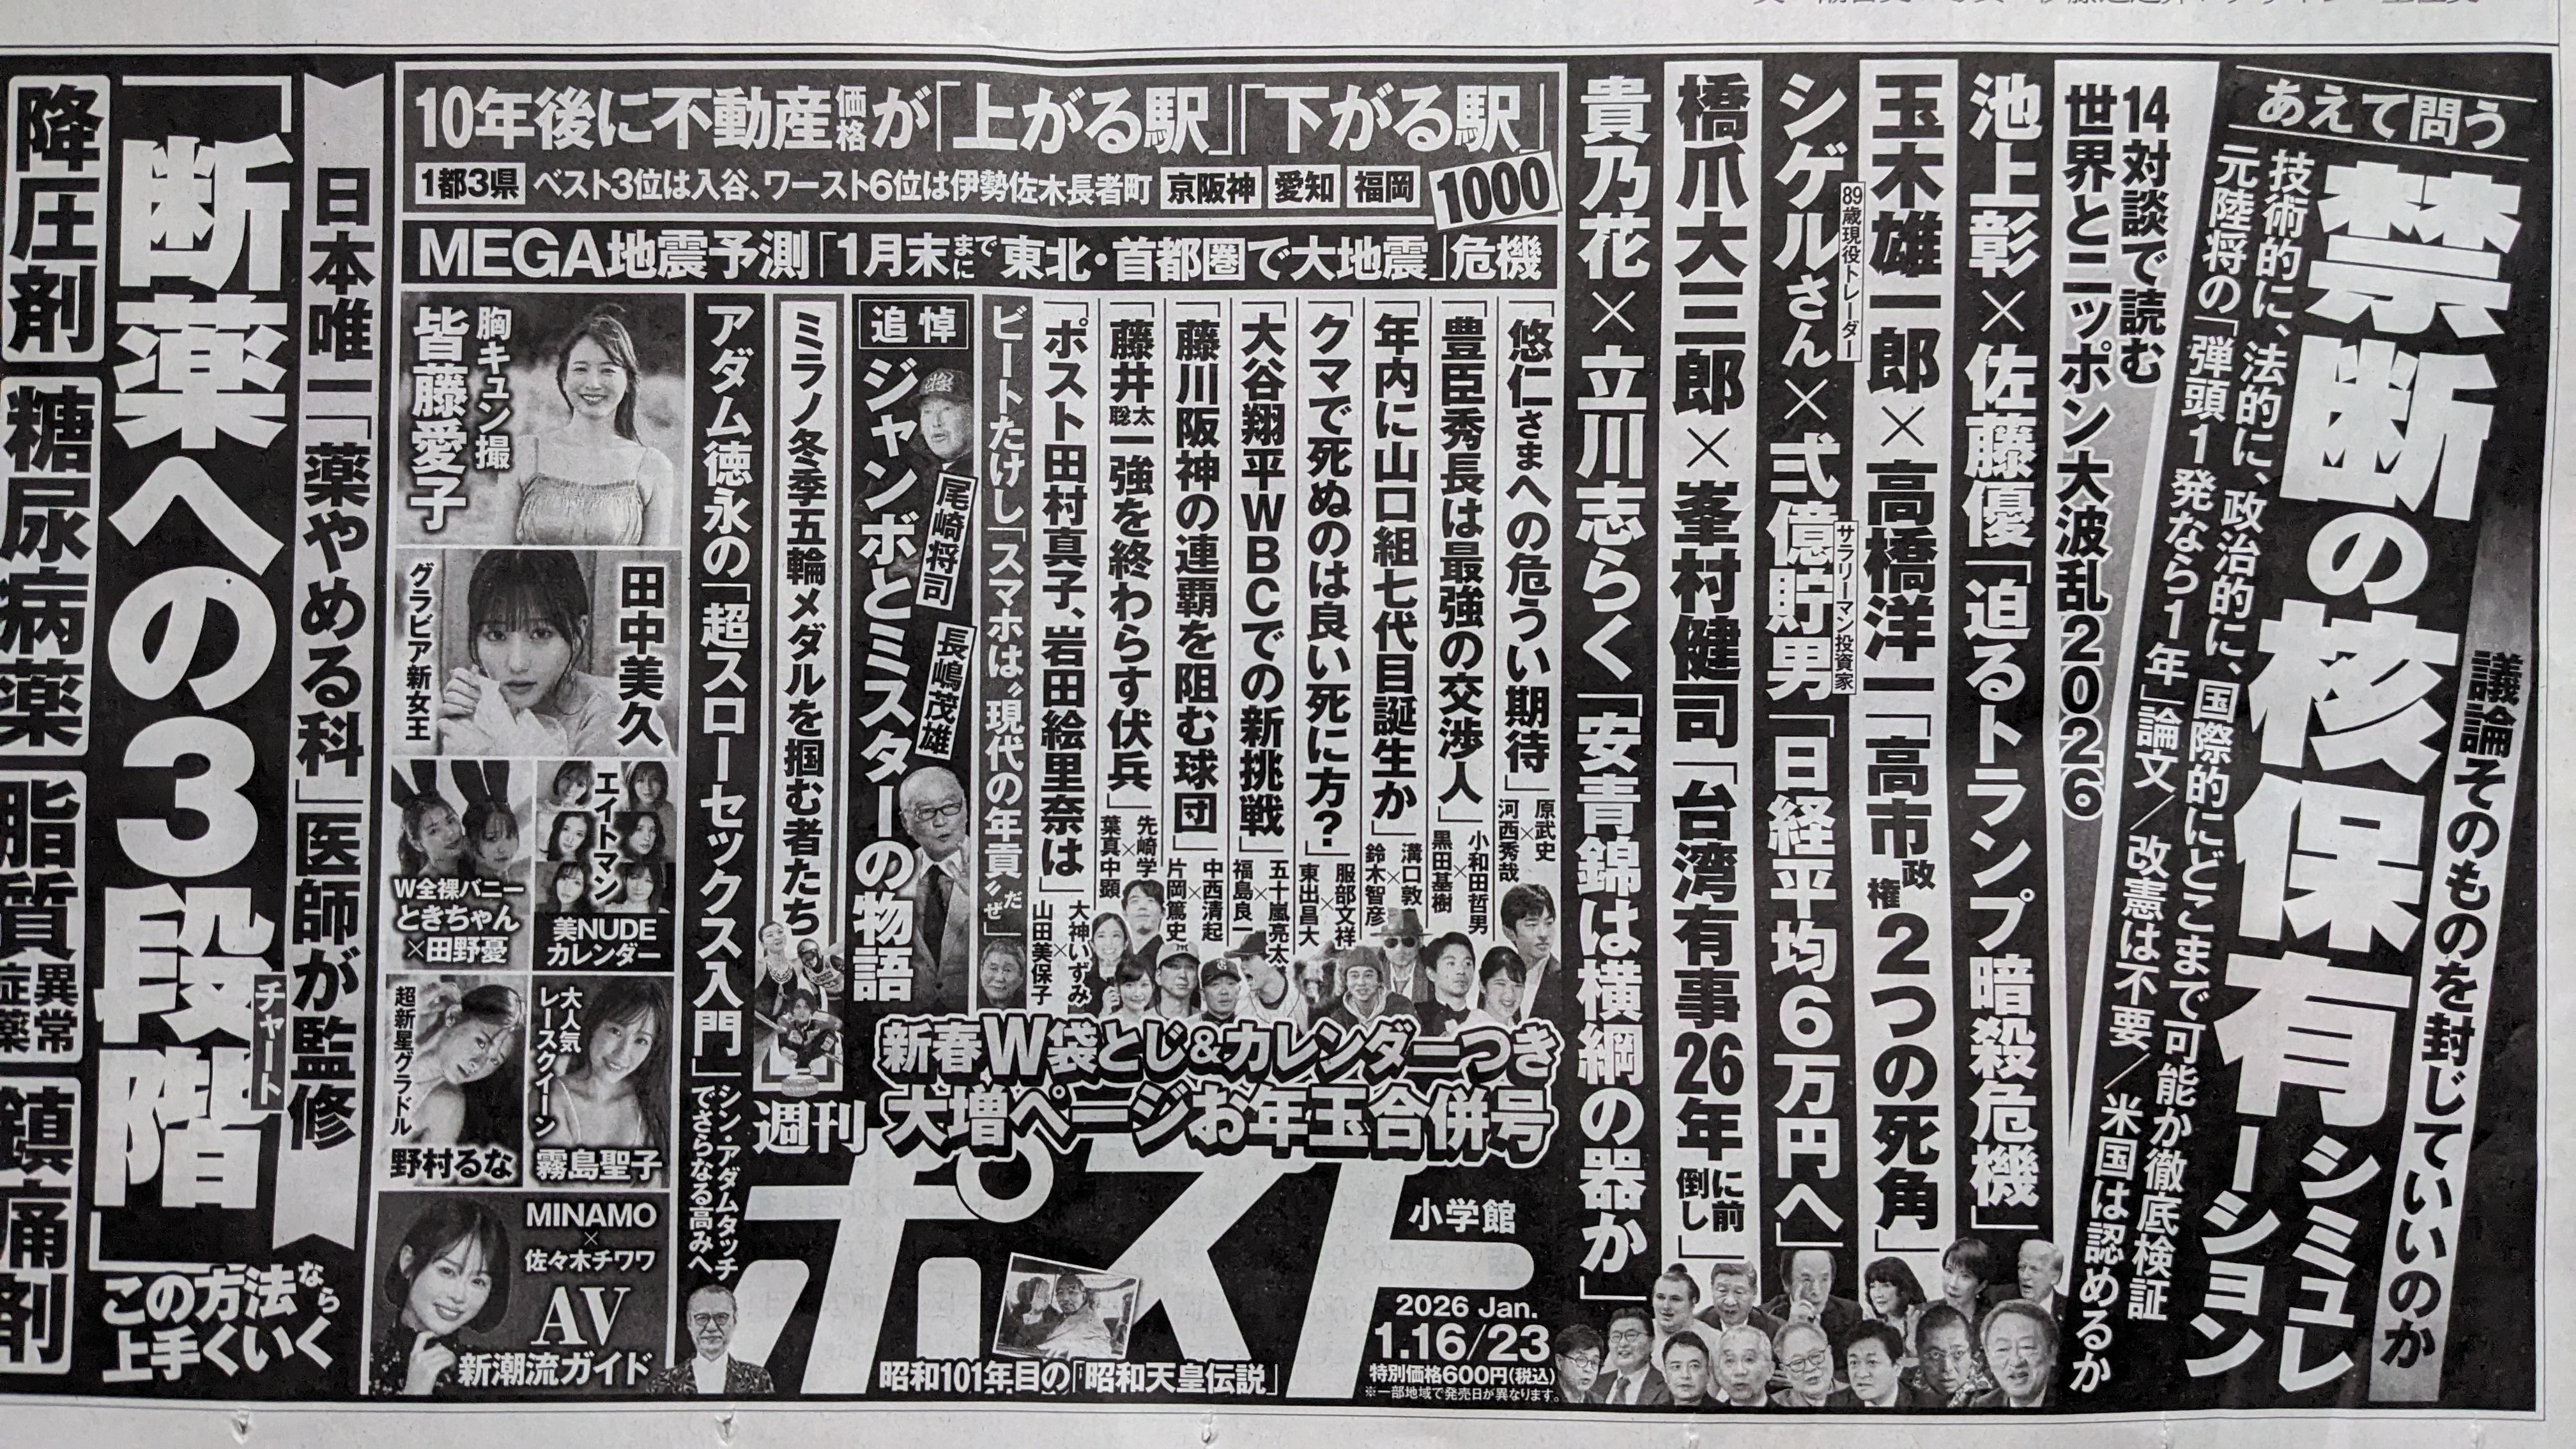 あえて問う
禁断の核保有シミュレーション
議論そのものを封じていいのか
技術的に、法的に、政治的に、国際的にどこまで可能か徹底検証
元陸将の「弾頭1発なら1年」論文/改憲は不要/米国は認めるか
14対談で読む
世界とニッポン大波乱2026
池上彰×佐藤優「迫るトランプ暗殺危機」
玉木雄一郎×高橋洋一「高市政権2つの死角」
89歳現役トレーダー
シゲルさん×弐億貯男「日経平均6万円へ」
サラリーマン投資家
橋爪大三郎×峯村健司「台湾有事26年に前倒し」
貴乃花×立川志らく「安青錦は横綱の器か」
10年後に不動産価格が「上がる駅」「下がる駅」
1都3県 ベスト3位は入谷、ワースト6位は伊勢佐木長者町 京阪神 愛知 福岡 1000
MEGA地震予測「1月末までに東北・首都圏で大地震」危機
「悠仁さまへの危うい期待」原武史×河西秀哉
「豊臣秀長は最強の交渉人」小和田哲男×黒田基樹
「年内に山口組七代目誕生か」溝口敦×鈴木智彦
「クマで死ぬのは良い死に方?」服部文祥×東出昌大
「大谷翔平WBCでの新挑戦」五十嵐亮太×福島良一
「藤川阪神の連覇を阻む球団」中西清起×片岡篤史
「藤井聡太一強を終わらす伏兵」先崎学×葉真中顕
「ポスト田村真子、岩田絵里奈は」大神いずみ×山田美保子
ビートたけし「スマホは〝現代の年貢〟だぜ」
追悼
ジャンボとミスターの物語
尾崎将司
長嶋茂雄
ミラノ冬季五輪メダルを掴む者たち
アダム徳永の「超スローセックス入門」シン・アダムタッチでさらなる高みへ
新春W袋とじ&カレンダーつき
大増ページお年玉合併号
週刊ポスト
小学館
2026 Jan.
1.16/23
特別価格600円(税込)
※一部地域で発売日が異なります。
昭和101年目の「昭和天皇伝説」
胸キュン撮
皆藤愛子
田中美久
グラビア新女王
エイトマン
美NUDE
カレンダー
W全裸バニー
ときちゃん
×田野憂
大人気
レースクイーン
霧島聖子
超新星グラドル
野村るな
MINAMO
×
佐々木チワワ
AV
新潮流ガイド
日本唯一「薬やめる科」医師が監修
「断薬への3段階」チャート
この方法なら
上手くいく
降圧剤
糖尿病薬
脂質異常症薬
鎮痛剤